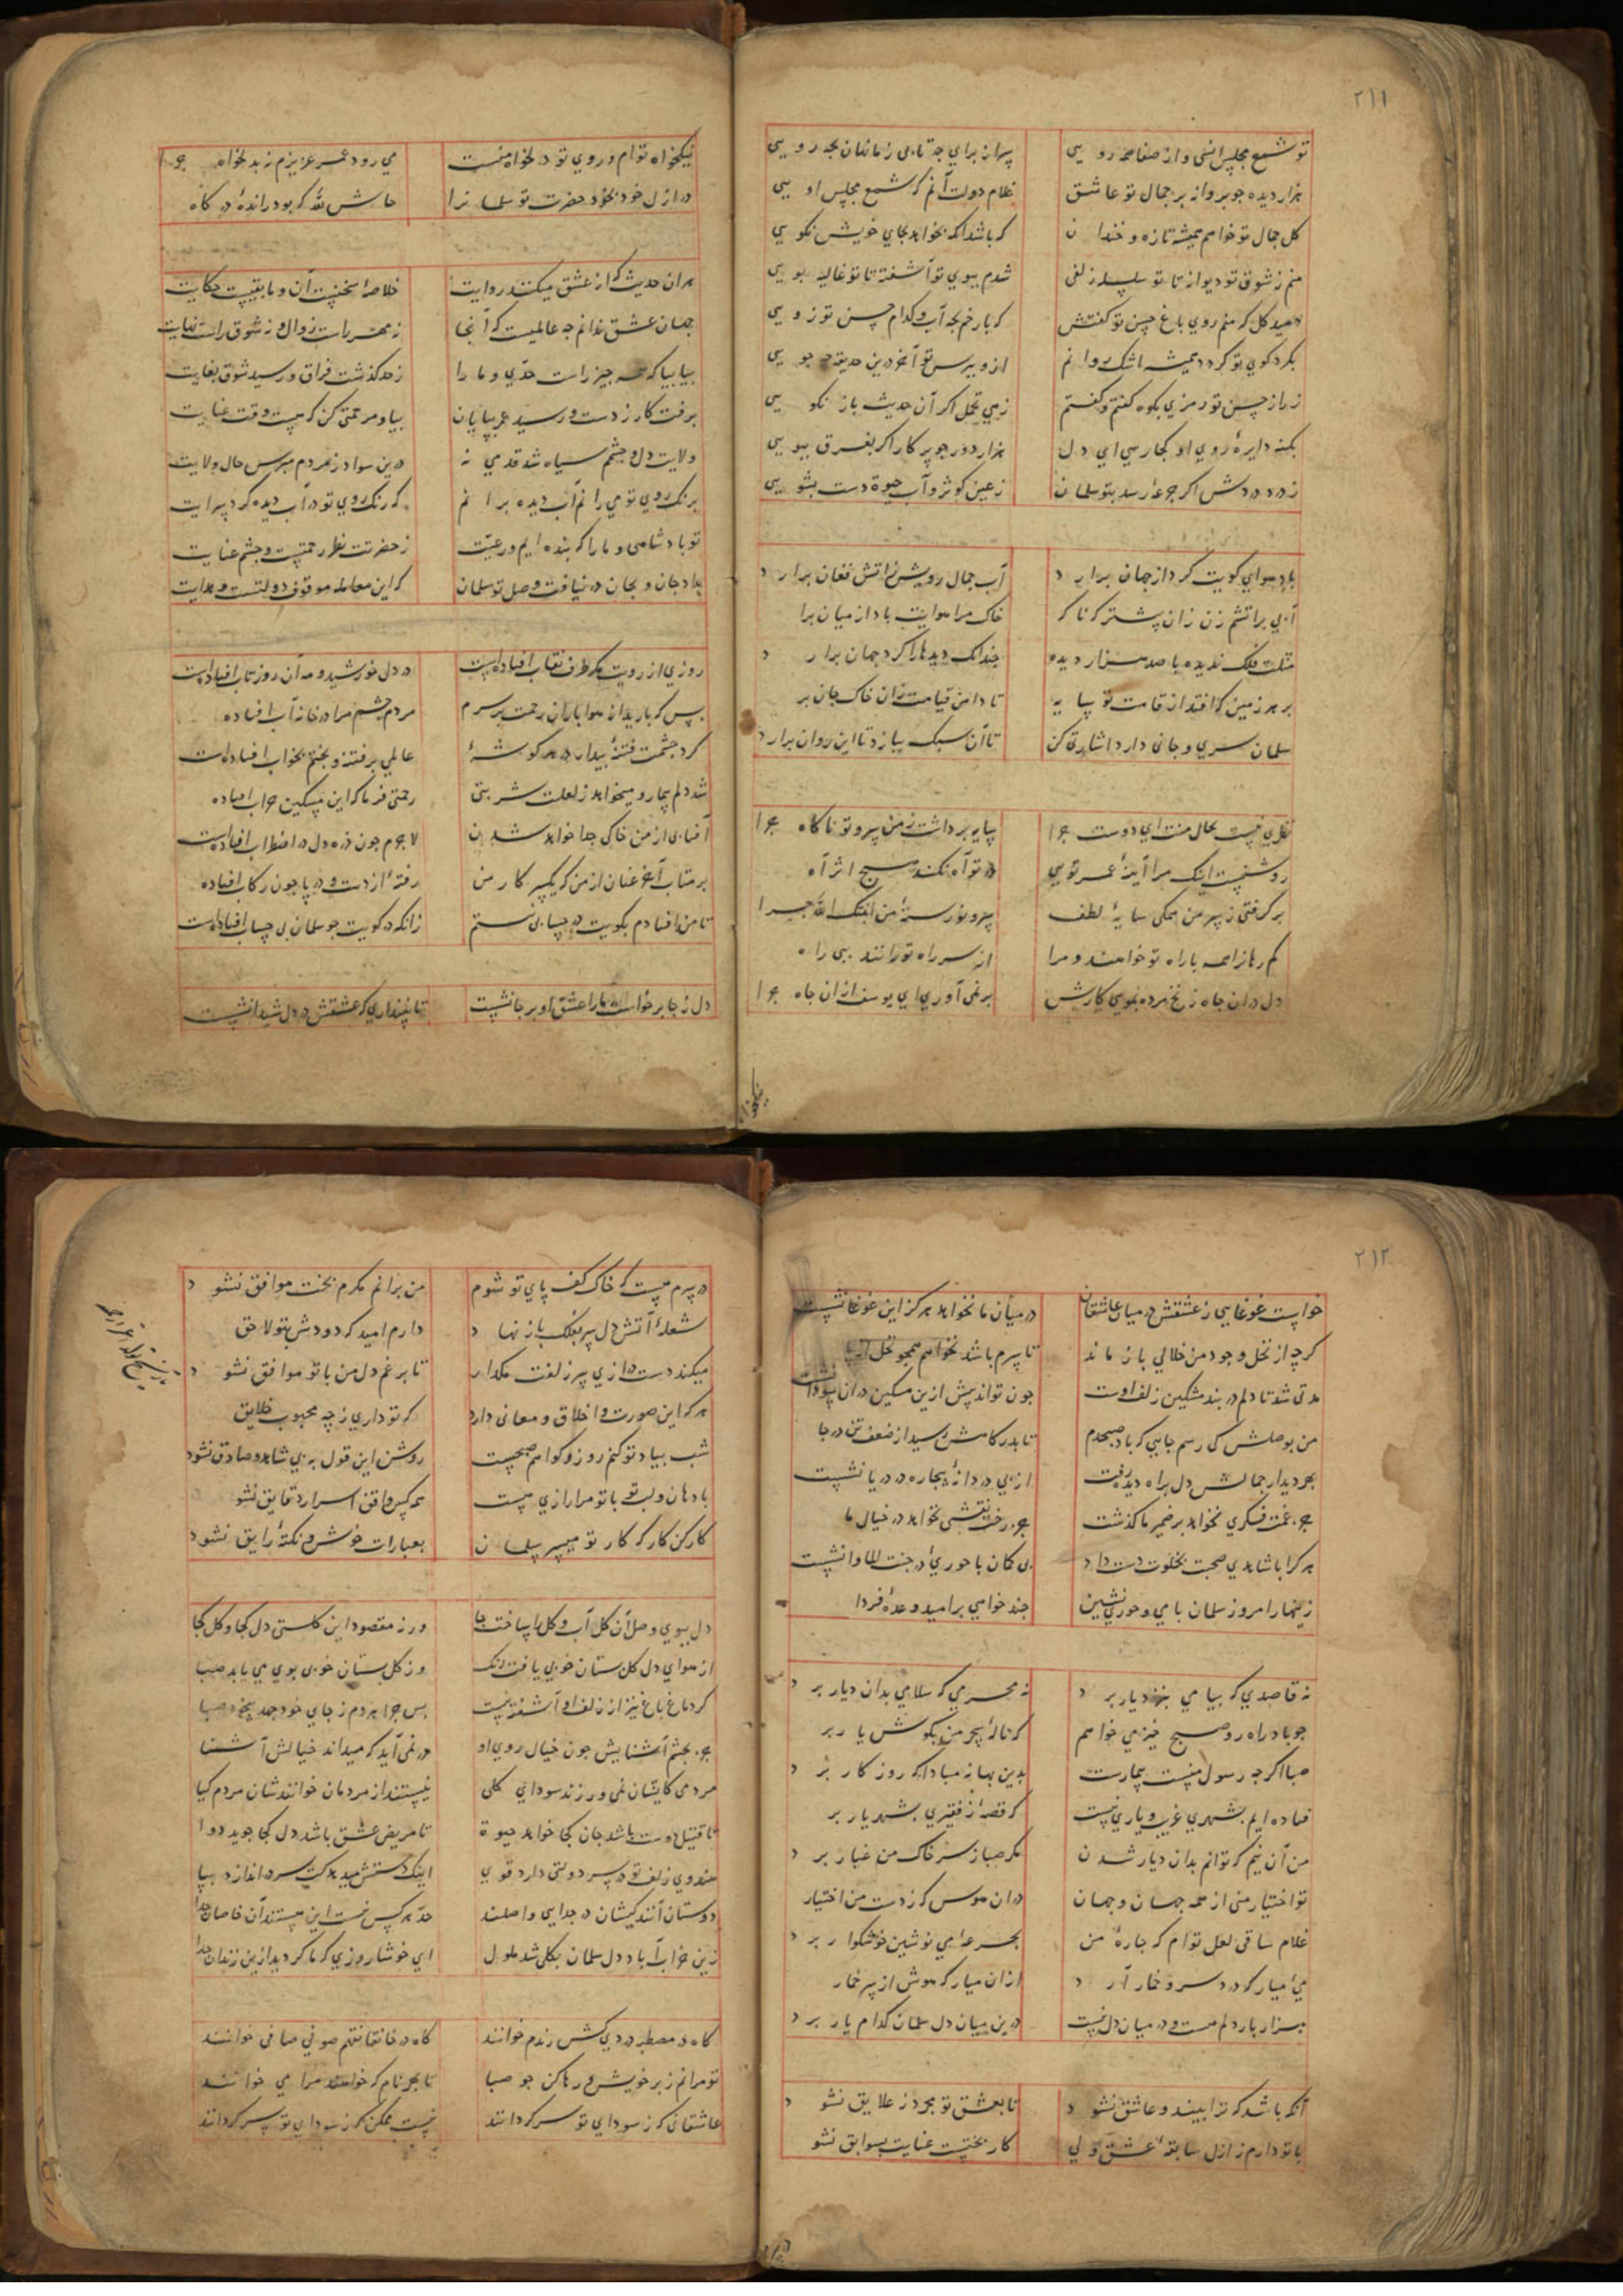 ۲۱۱
تو شمع مجلس انسی و از صفا همه رویی
هزار دیده چو پروانه بر جمال تو عاشق غلام دولت آنم که شمع مجلس اویی
کل جمال تو خواهم همیشه تازه و خندان که باشد انکه نخواهد بجای خویش نکویی
منم ز شوق تو دیوانه تا تو سلسله زلفی شدم ببوی تو آشفته تا تو غالیه بویی
دمید کل که منم روی باغ حسن تو کفتش که بارخم بچه آب و کدام حسن تو رویی
بکرد کوی تو کردد همیشه اشک روانم ازو بپرس تو آخر درین حدیقه چه جویی
ز راز حسن تو رمزی بکوه کفتم و کفتم زهی تحمل اکر آن حدیث باز نکویی
بکنه دایرهٔ روی او کجا رسی ای دل هزار دور چو پرکار اکر بفرق بپویی
ز درد دردش اکر جرعهٔ رسد بتو سلمان ز عین کوثر و آب حیوة دست بشویی
باد هوای کویت کرد از جهان برارد آب جمال رویش ز آتش فغان برارد
آبی بر آتشم زن زان پیشتر که ناکه خاک مرا هوایت باد از میان برارد
مثلت فلک ندیده با صد هزار دیده چندانک دیدها را کرد جهان برارد
بر هر زمین که افتد از قامت تو سایه تا دامن قیامت زان خاک جان برارد
سلمان سری و جانی دارد اشارتی کن تا آن سبک ببازد تا این روان برارد
نظری نیست بحال منت ای دوست چرا سایه برداشت ز من سرو تو ناکاه چرا
روشنست اینک مرا آینهٔ عمر تویی در تو آه نکند هیچ اثر آه چرا
بر کرفتی ز سر من همکی سایهٔ لطف سرو نو رستهٔ من انبتک الله چرا
کمرهان را همه با راه تو خوانند و مرا از سر راه تو رانند ببی راه چرا
دل در ان چاه زنخ مرده بموی کارش بر نمی آوری ای یوسف از آن چاه چرا
نیکخواه
نیکخواه توام و روی تو دلخواه منست می رود عمر عزیزم ز بدخواه چرا
در ازل خود بخود حضرت تو سلمان را حاش لله که بود راندهٔ درکاه چرا
هران حدیث که از عشق میکنند روایت خلاصه سخنیست آن و مابقیست حکایت
جهان عشق ندانم چه عالمیست که آنجا نه مهر راست زوال و نه شوق راست نهایت
بیا بیا که همه چیز راست حدی و ما را ز حد کذشت فراق و رسید شوق بغایت
برفت کار ز دست و رسید عمر بپایان بیا و مرحمتی کن که هست وقت عنایت
ولایت دل و چشمم سیاه شد قدمی نه درین سواد ز مردم مپرس حال ولایت
برنک روی تو می رانم آب دیده برانم که رنک روی تو در آب دیده کرد سرایت
تو پادشاهی و ما را که بنده ایم و رعیت ز حضرتت نظر رحمتست و چشم عنایت
بداد جان و بجان در نیافت وصل تو سلمان که این معامله موقوف دولتست و هدایت
روزی از رویت مکر طرف نقاب افتاده است در دل خورشید و مه آن روز تاب افتاده است
بس که بارید از هوا باران رحمت بر سرم مردم چشم مرا در خانه آب افتاده
کرد چشمت فتنهٔ بیدار در هر کوشهٔ عالمی بر فتنه و بختم بخواب افتاده است
شد دلم بیمار و میخواهد ز لعلت شربتی رحمتی فرما که این مسکین خراب افتاده
آفتابی از من خاکی جدا خواهد شدن لاجرم چون ذره دل در اضطراب افتاده است
بر متاب آخر عنان از من که یکسر کار من رفتهٔ از دست و در پا چون رکاب افتاده
تا من افتادم بکویت در حسابی نیستم زانکه در کویت چو سلمان بی حساب افتاده است
دل ز جا برخاست ما را عشق او بر جا نشست تا نپنداری که عشقش در دل شیدا نشست
۲۱۲
خواست غوغایی ز عشقش در میان عاشقان در میان ما نخواهد هرکز این غوغا نشست
کرچه از نخل وجود من خلالی باز ماند تا سرم باشد نخواهم همچو نخل از پا
مدتی شد تا دلم در بند مشکین زلف اوست چون تواند بیش ازین مسکین در ان سودا نشست
من بوصلش کی رسم جایی که باد صبحدم تا بدر کاهش رسید از ضعف تن در جا
بهر دیدار جمالش دل براه دیده رفت از پی دردانهٔ بیچاره در دریا نشست
جز غمت فکری نخواهد بر ضمیر ما کذشت جز رخت نقشی نخواهد در خیال ما
هر کرا با شاهدی صحبت بخلوت دست داد بی کمان با حوریٔ در جنت الماوا نشست
زینهار امروز سلمان با می و حوری نشین چند خواهی بر امید وعدهٔ فردا
نه قاصدی که پیامی بنزد یار برد نه محرمی که سلامی بدان دیار برد
چو باد راه رو صبح خیز می خواهم که نالهٔ سحر من بکوش یار برد
صبا اکرچه رسول منست بیمارست بدین بهانه مبادا که روزکار برد
فتاده ایم بشهری غریب و یاری نیست که قصهٔ ز فقیری بشهریار برد
من آن نیم که توانم بدان دیار شدن مکر صبا ز سر خاک من غبار برد
تو اختیار منی از همه جهان و جهان در ان هوس که ز دست من اختیار
غلام ساقی لعل توام که چارهٔ من بجرعهٔ می نوشین خوشکوار برد
میٔ میار که درد سر و خمار آرد ازان میار که هوش از سر خمار
هزار بار دلم هست و در میان دل نیست درین میان دل سلمان کدام یار برد
آنکه باشد که ترا بیند و عاشق نشود تا بعشق تو مجرد ز علایق نشود
با تو دارم ز ازل سابقهٔ عشق ولی کار بختیست عنایت بسوابق نشو
در سرم هست که خاک کف پای تو شوم من برانم مکرم بخت موافق نشود
شعلهٔ آتش دل سر بفلک باز نهاد دارم امید که دودش بتو لاحق
میکند دست درازی سر زلفت مکذار تا برغم دل من با تو موافق نشود
هر که این صورت و اخلاق و معانی دارد که تو داری ز چه محبوب خلایق
شب بیاد تو کنم روز و کواهم صبحست روشن این قول به بی شاهد صادق نشود
با دهان و لب تو با تو مرا رازی هست همه کس واقف اسرار دقایق نشو
کار کن کار که کار تو میسر سلمان بعبارات خوش و نکتهٔ رایق نشود
دل ببوی وصل آن کل آب و کل را ساخت جا ورنه مقصود این کلستی دل کجا و کل کجا
از هوای دل کلستان خوبی یافت رنک وز کلستان خوبی بوی می یابد صبا
کر دماغ باغ نیز از زلف او آشفته نیست بس چرا هر دم ز جای خود جهد بیخود صبا
جز بچشم آشنایش چون خیال روی او در نمی آید که میداند خیالش آشنا
مردمی کایشان نمی ورزند سودای کلی نیستند از مردمان خوانندشان مردم کیا
تا قتیل دوست باشد جان کجا خواهد حیوة تا مریض عشق باشد دل کجا جوید دوا
هندوی زلف تو در سر دولتی دارد قوی
دوستان آنند کیشان در جدایی واصلند حد هر کس نیست این هستند آن خاصان جدا
زین خراب آباد دل سلمان بکلی شد ملول ای خوشا روزی که ما کردیم ازین زندان جدا
کاه در مصطبه دردی کش رندم خوانند کاه در خانقاهم صوفی صافی خوانند
تو مرا نم ز بر خویش و رها کن چو صبا تا بهر نام که خواهند مرا می خوانند
عاشقانی که ز سودای تو سر کردانند نیست ممکن که ز سودای تو سر کردانند